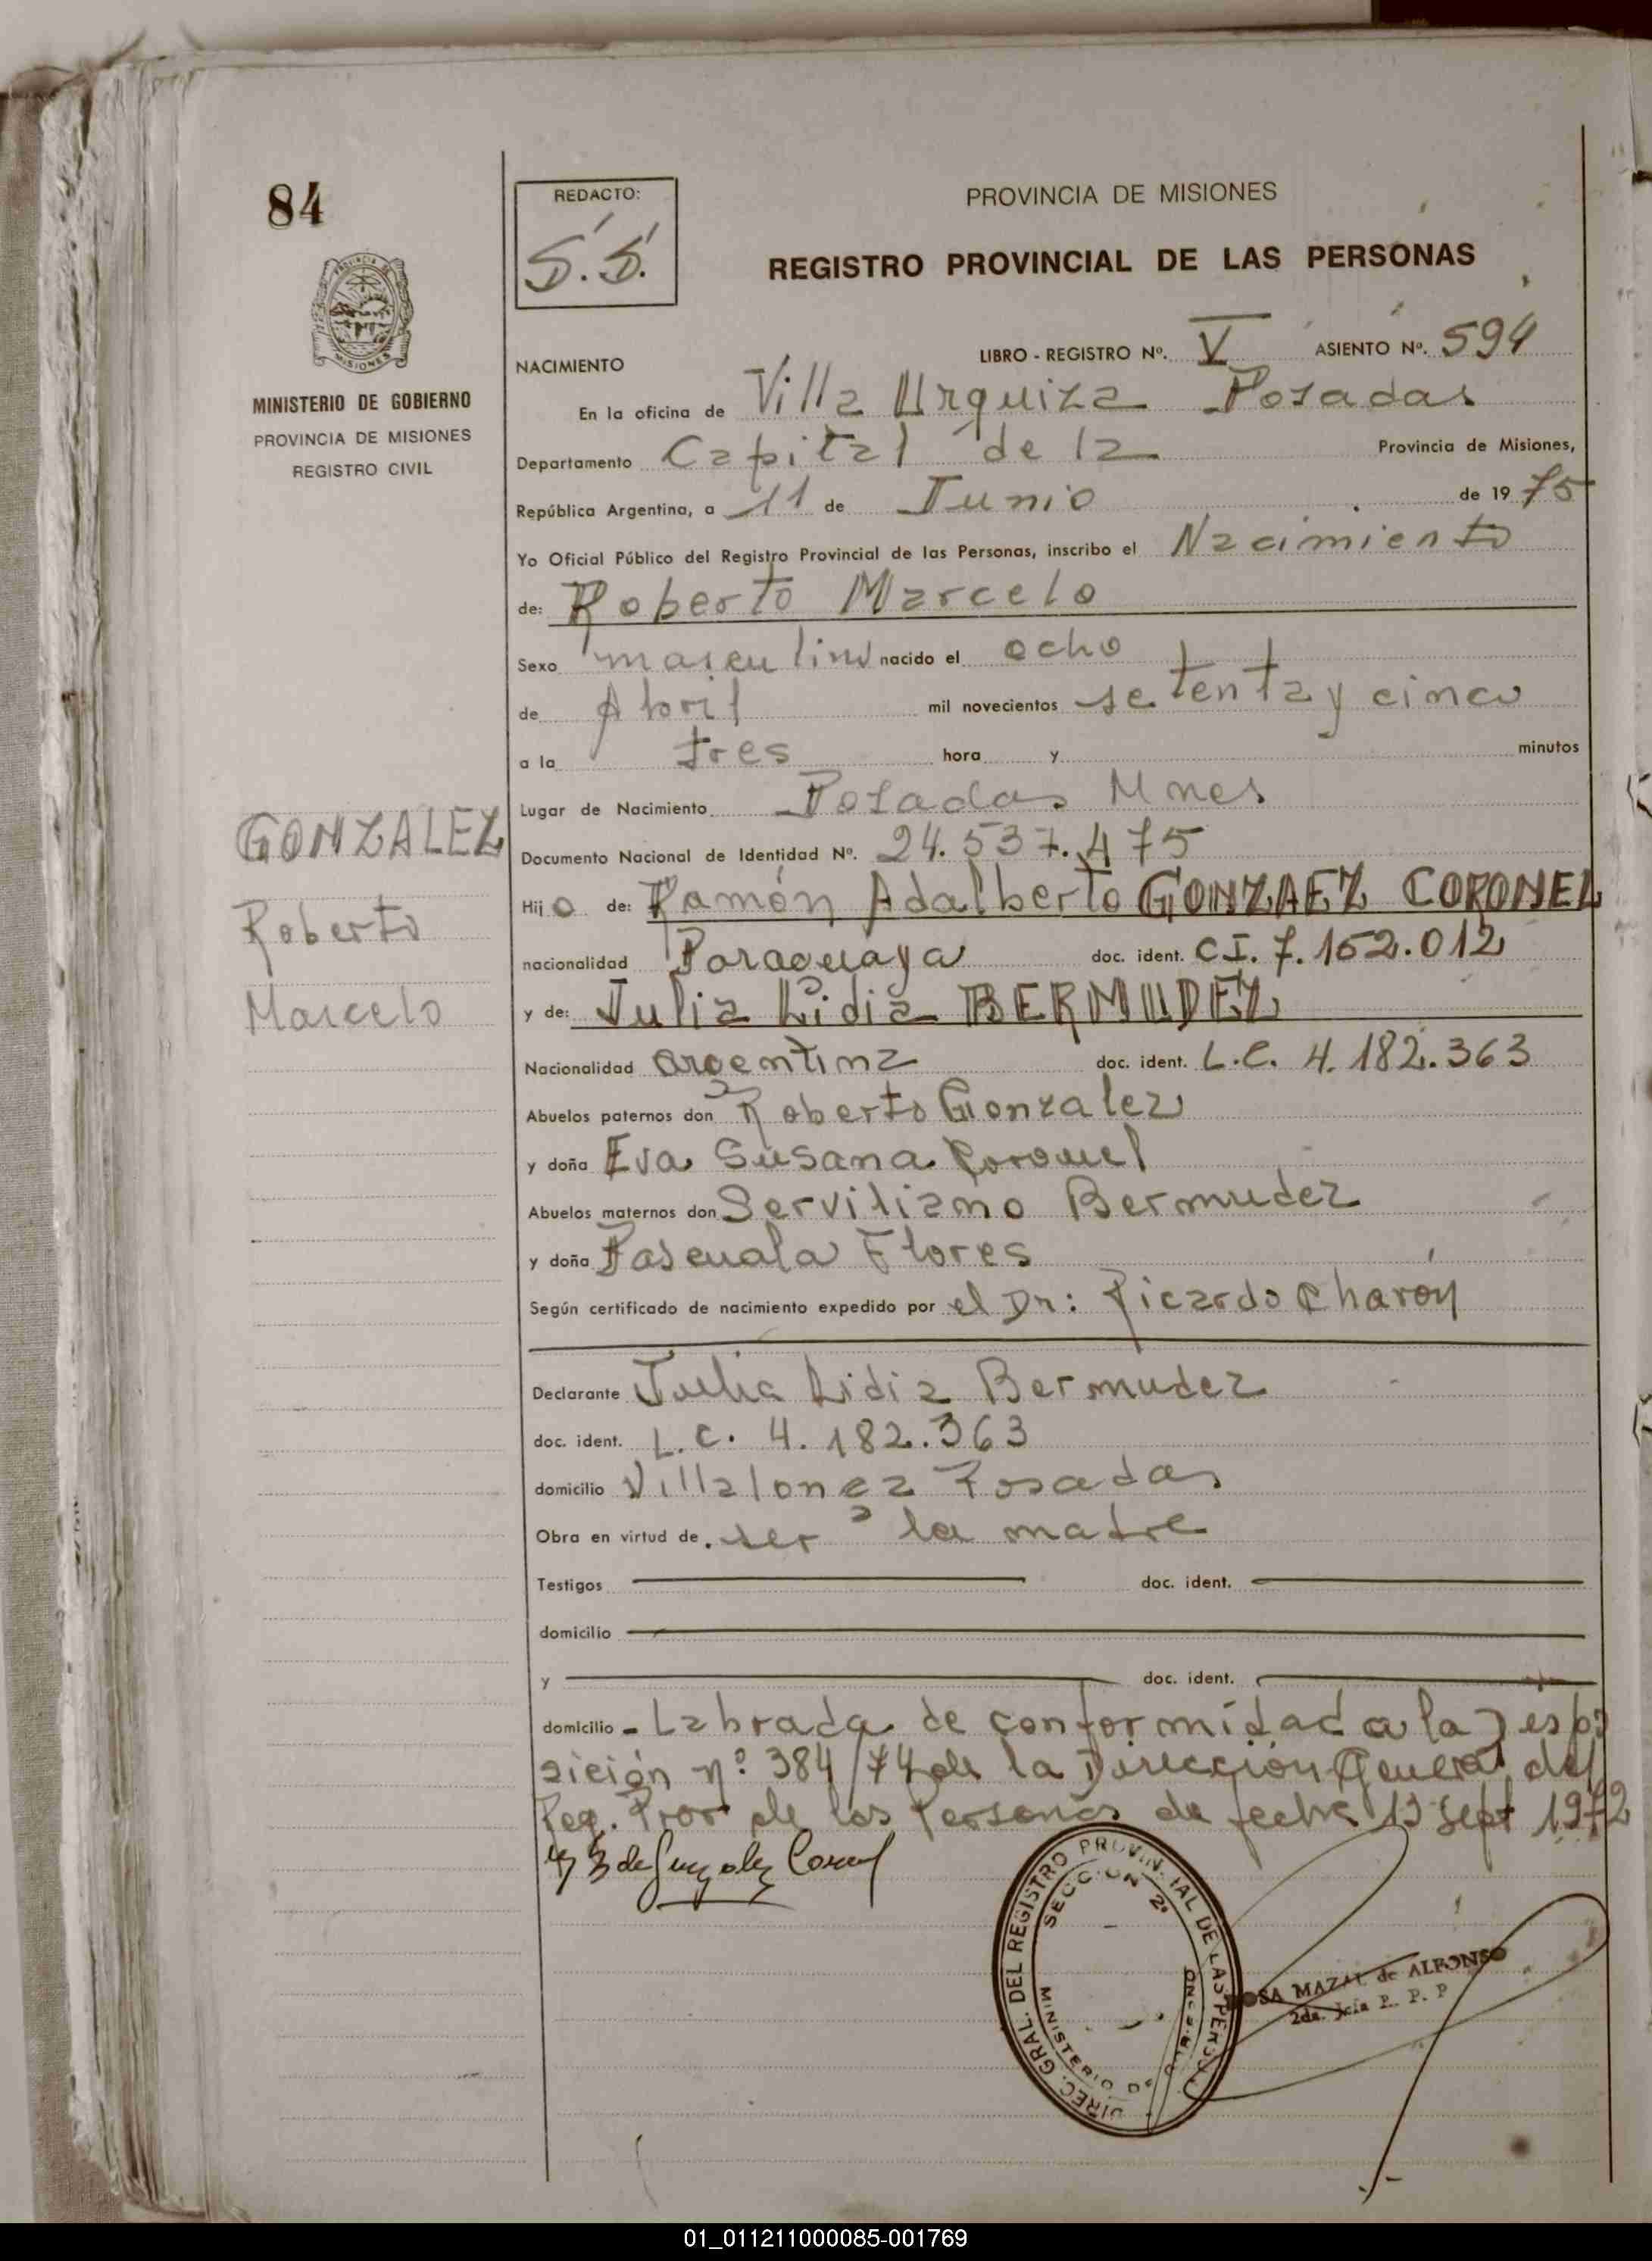 84
REDACTO:
S.S.
PROVINCIA DE MISIONES
REGISTRO PROVINCIAL DE LAS PERSONAS
MISIONES
MINISTERIO DE GOBIERNO
PROVINCIA DE MISIONES
REGISTRO CIVIL
NACIMIENTO
LIBRO - REGISTRO Nº. V ASIENTO Nº. 594
En la oficina de Villa Urquiza Posadas
Departamento Capital de la Provincia de Misiones,
República Argentina, a 11 de Junio de 1975
Yo Oficial Público del Registro Provincial de las Personas, inscribo el Nacimiento
de: Roberto Marcelo
Sexo masculino nacido el ocho
de Abril mil novecientos setenta y cinco
a la tres hora y minutos
Lugar de Nacimiento Posadas Mnes
GONZALEZ
Roberto
Marcelo
Documento Nacional de Identidad Nº. 24.537.475
Hijo de: Ramón Adalberto GONZAEZ CORONEL
nacionalidad Paraguaya doc. ident. CI. 7.152.012
y de: Julia Lidia BERMUDEZ
Nacionalidad argentina doc. ident. L.C. 4.182.363
Abuelos paternos don Roberto Gonzalez
y doña Eva Susana Coronel
Abuelos maternos don Serviliano Bermudez
y doña Pascuala Flores
Según certificado de nacimiento expedido por el Dr: Ricardo Charón
Declarante Julia Lidia Bermudez
doc. ident. L.C. 4.182.363
domicilio Villalonga Posadas
Obra en virtud de. ser la madre
Testigos doc. ident.
domicilio
y doc. ident.
domicilio - Labrada de conformidad a la
sición nº: 384/74 de la Dirección General del
Reg. Prov de las Personas de fecha 13 Sept 1972
de Gonzalez Coronel
DIREC. GRAL. DEL REGISTRO PROVINCIAL DE LAS PERSO
SECCION 2ª
MINISTERIO DE
ROSA MAZAL de ALFONSO
2da. Jefa R. P. P
01_011211000085-001769